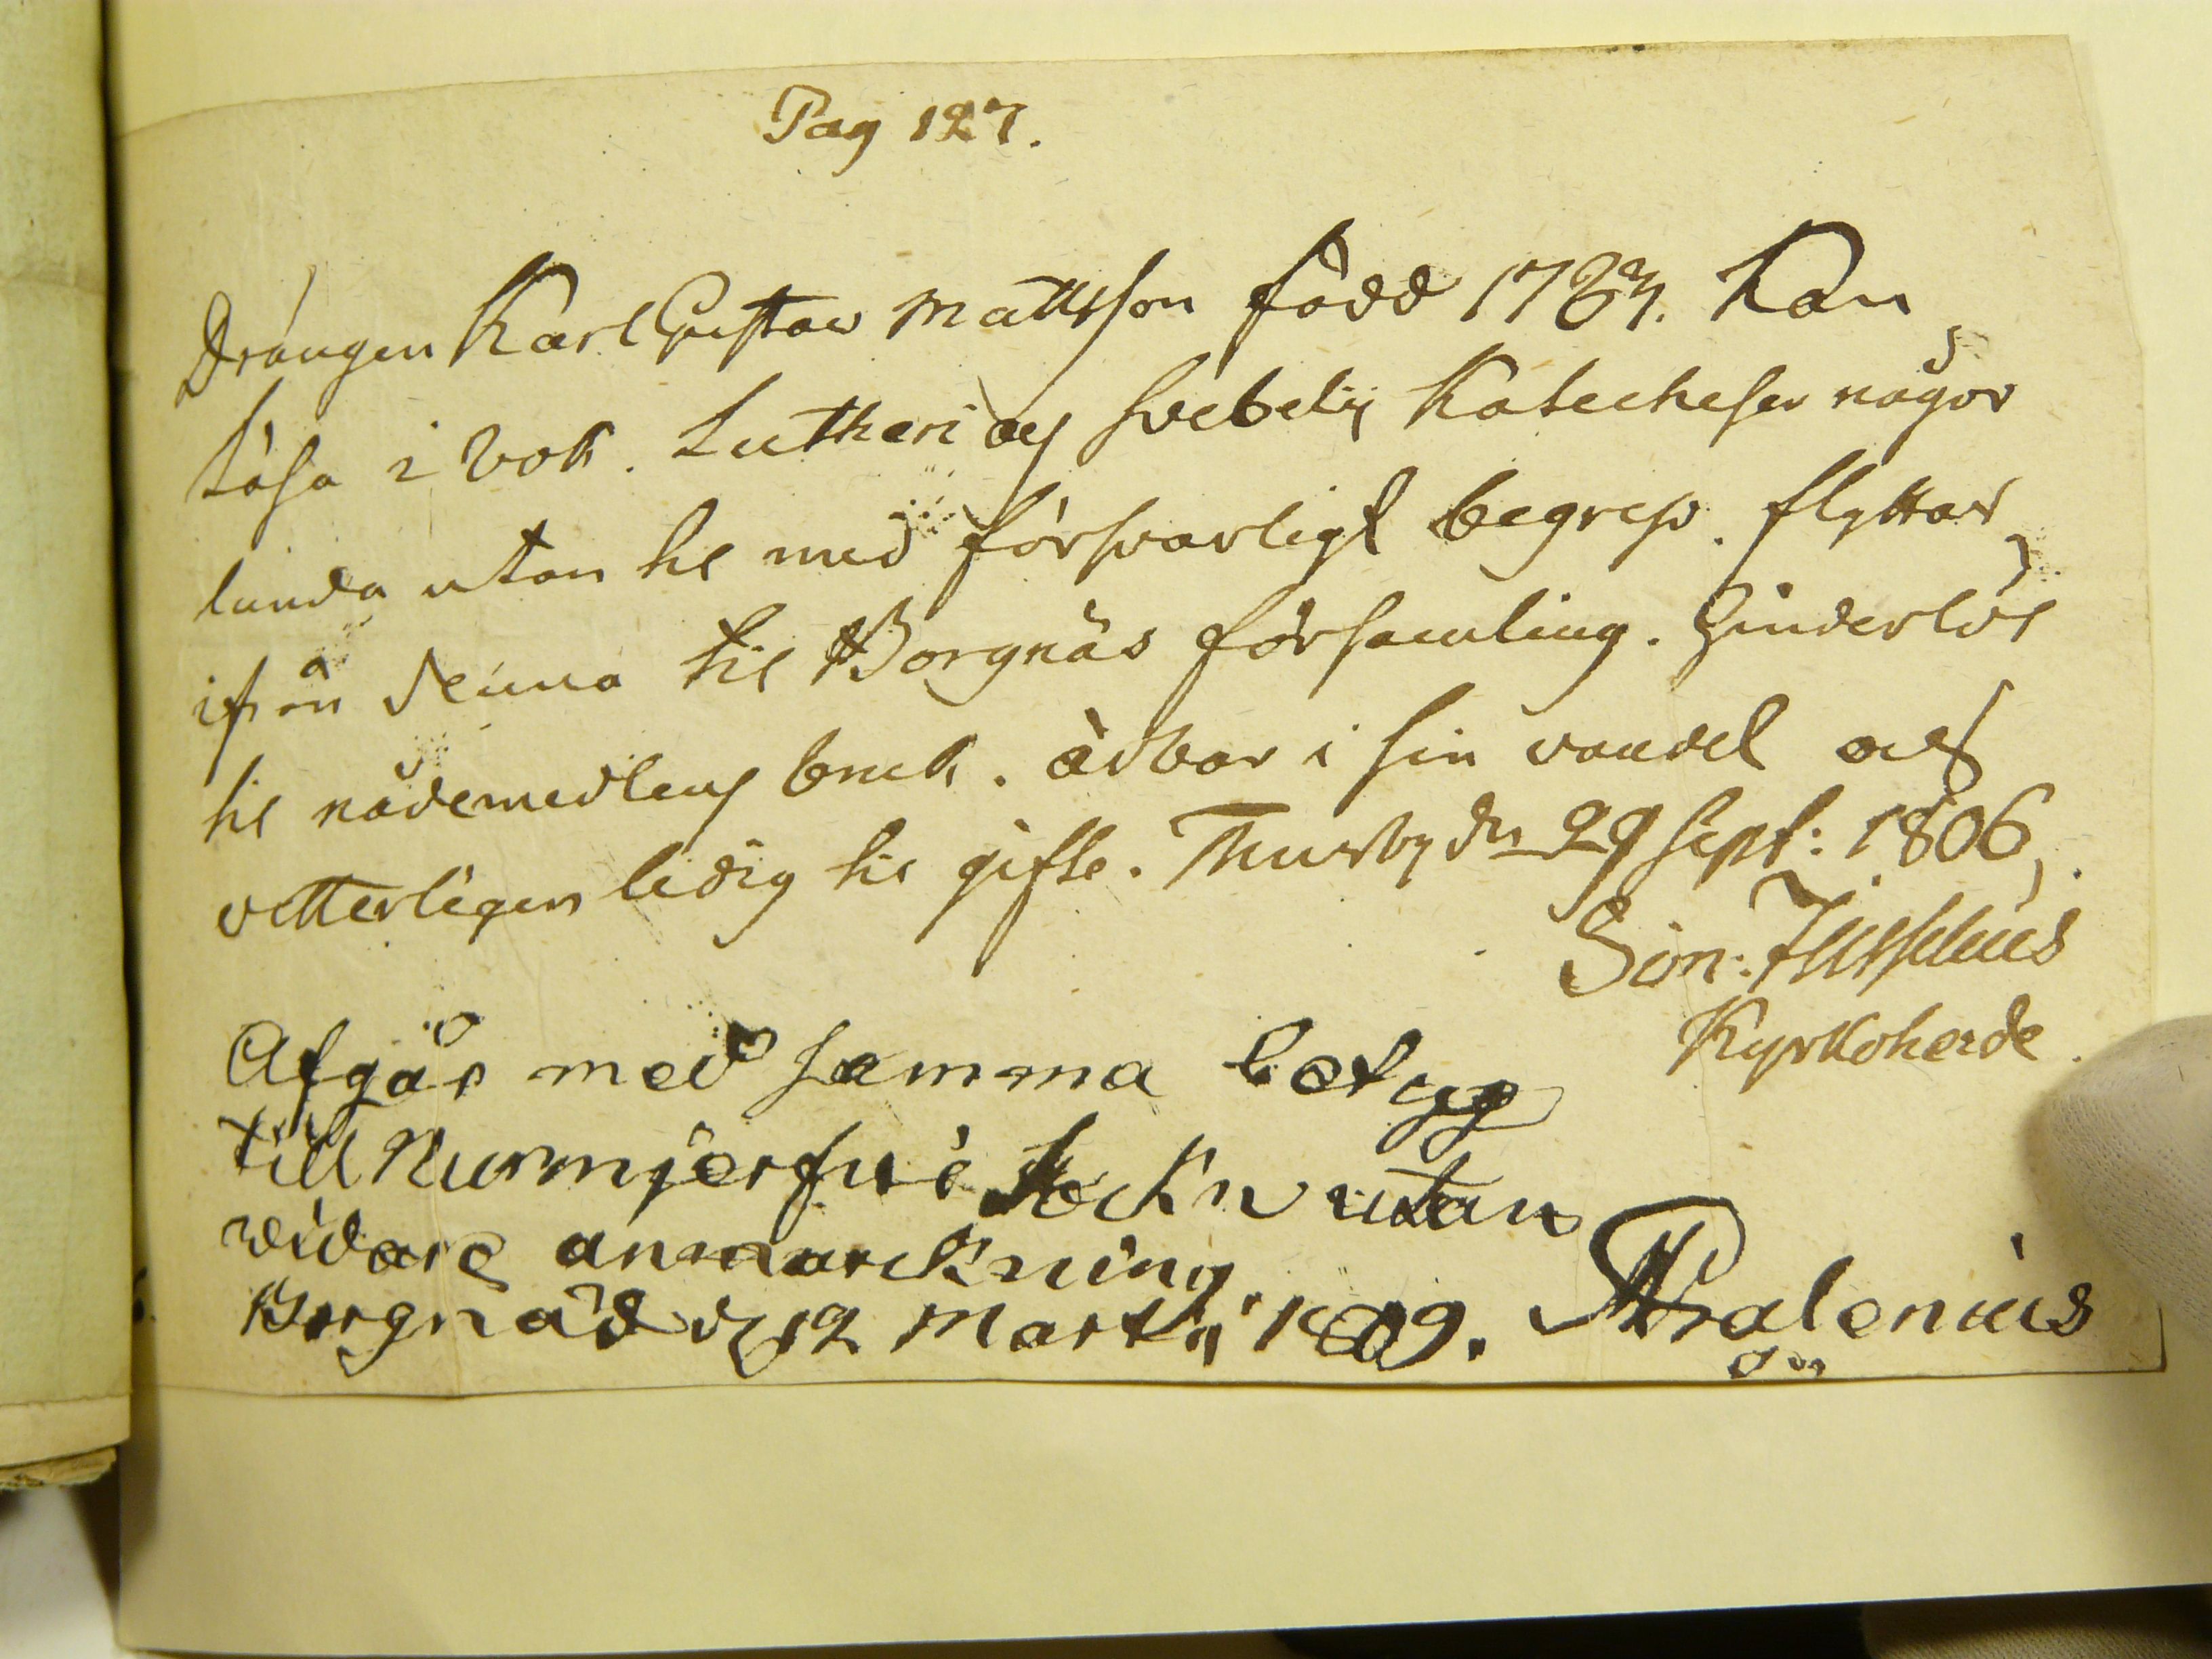 Pag 127.
Drängen Karl Gustav Mattsson född 1784. Kan
läsa i bok. Lutheri och Svebelii Katecheser någor
lunda utan til med försvarligt begrep. flyttar
ifrån denna til Borgnäs församling. Hinderlös
til nådemedlens bruk. ärbar i sin vandel och
vetterligen ledig til gifte. Thusby dn 29 Sept: 1806.
Sim:
Kyrkoherde
Afgår med samma betyg
till Nurmjerfvi Sockn utan
widare anmarckning
Borgnäs d 12 Martii 1809. Alenius